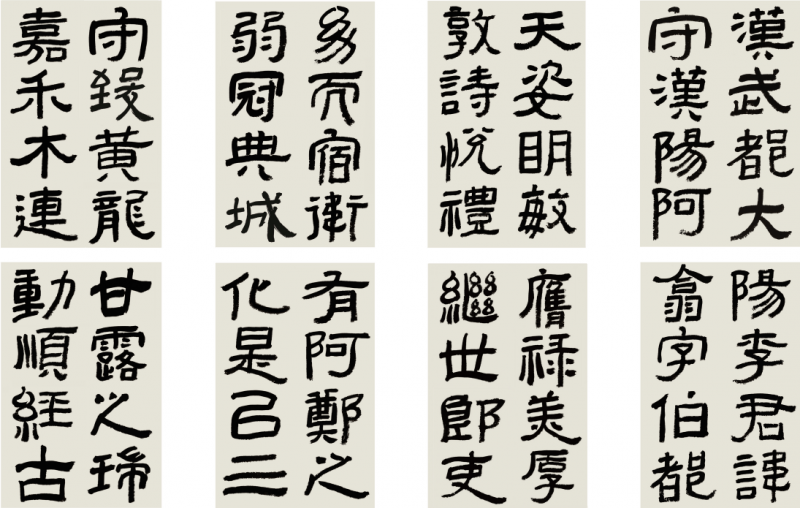 漢武都大
守漢陽阿
陽李君諱
翕字伯都
天姿明敏
敦詩悅禮
膺祿美厚
繼世郎吏
幼而宿衛
弱冠典城
有阿鄭之
化是㠯三
守致黃龍
嘉禾木連
甘露之瑞
動順經古